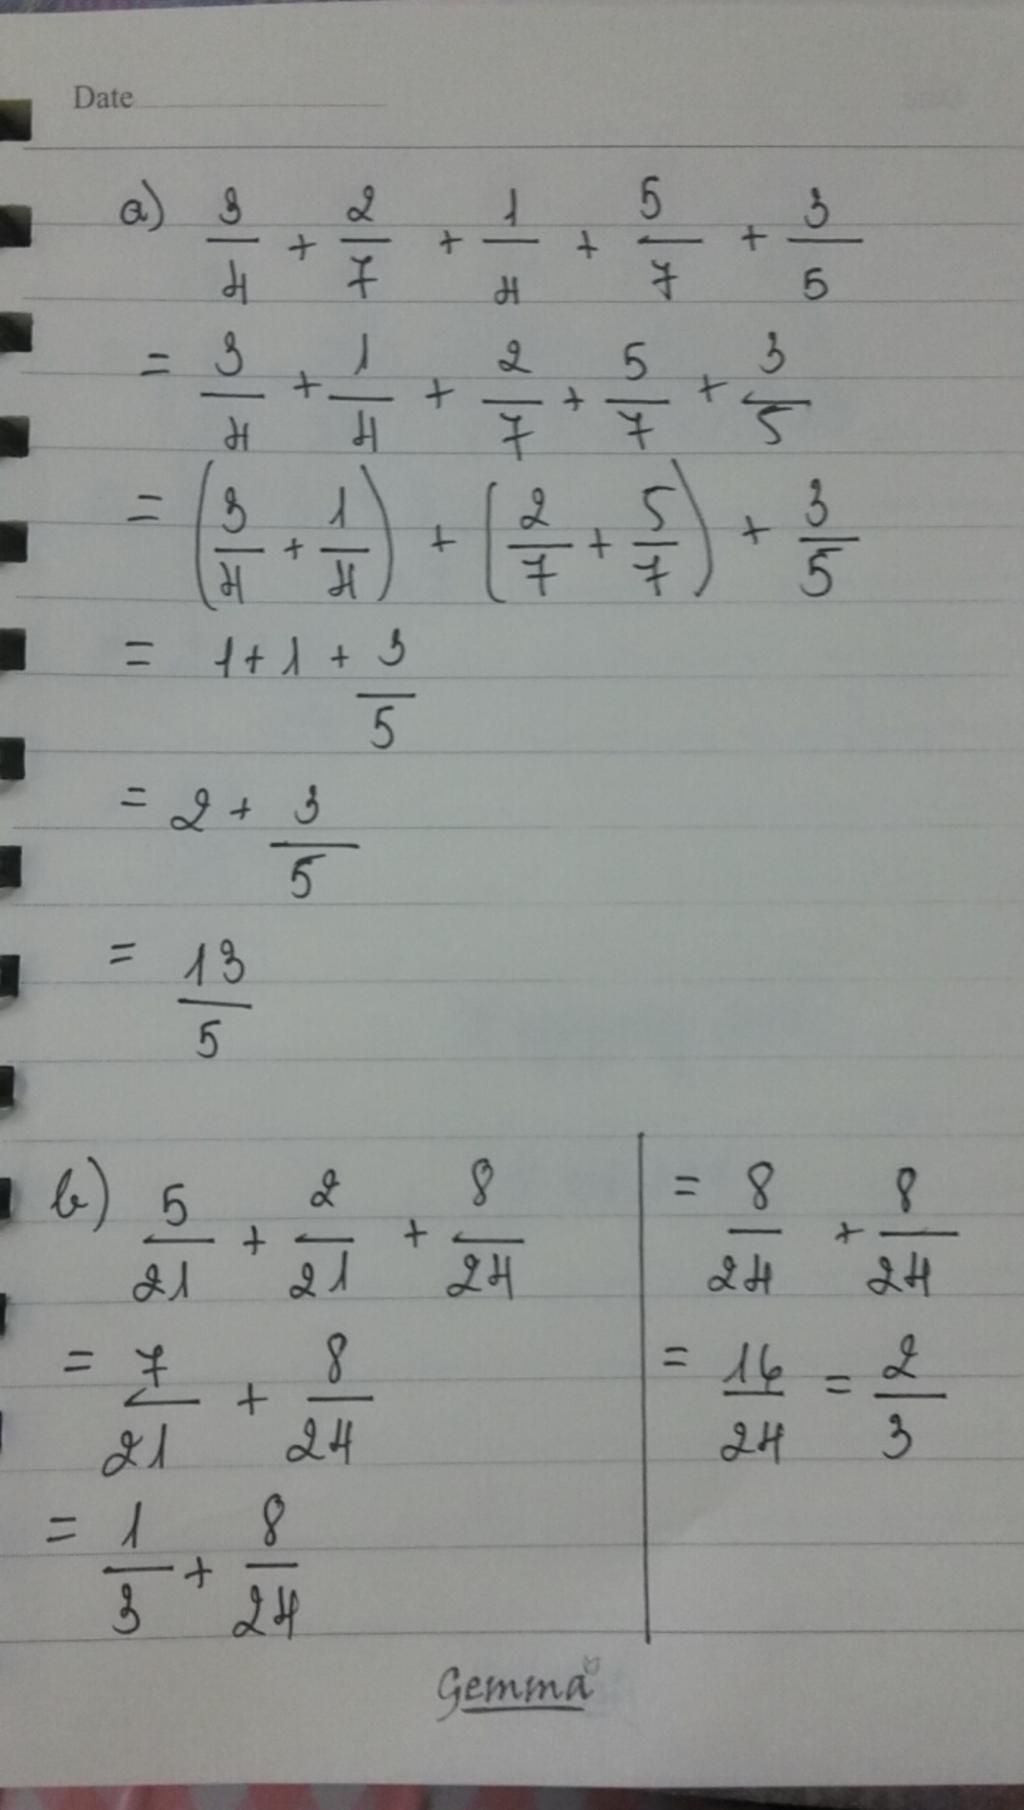 Date
a) 3/4 + 2/7 + 1/4 + 5/7 + 3/5
= 3/4 + 1/4 + 2/7 + 5/7 + 3/5
= (3/4 + 1/4) + (2/7 + 5/7) + 3/5
= 1 + 1 + 3/5
= 2 + 3/5
= 13/5
b) 5/21 + 2/21 + 8/24
= 7/21 + 8/24
= 1/3 + 8/24
= 8/24 + 8/24
= 16/24 = 2/3
Gemma